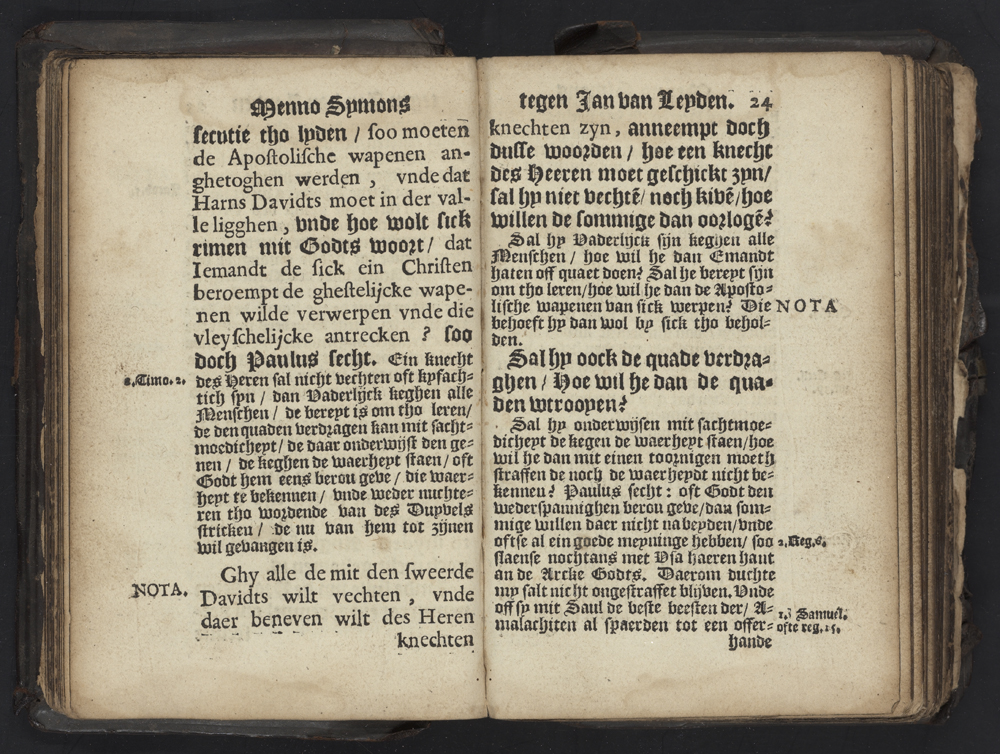 Menno Symons
secutie tho lyden / soo moeten
de Apostolische wapenen an-
ghetoghen werden , vnde dat
Harns Davidts moet in der val-
le ligghen , vnde hoe wolt sick
rimen mit Godts woort / dat
Iemandt de sick ein Christen
beroempt de ghestelijcke wape-
nen wilde verwerpen vnde die
vleyschelijcke antrecken ? soo
doch Paulus secht. Ein knecht
2. Timo. 2. des Heren sal nicht vechten oft kyfach-
tich syn / dan Vaderlijck keghen alle
Menschen / de bereyt is om tho leren /
de den quaden verdragen kan mit sacht-
moedicheyt / de daar onderwijst den ge-
nen / de keghen de waerheyt staen / oft
Godt hem eens berou geve / die waer-
heyt te bekennen / vnde weder nuchte-
ren tho wordende van des Duyvels
stricken / de nu van hem tot zijnen
wil gevangen is.
Ghy alle de mit den sweerde
NOTA. Davidts wilt vechten , vnde
daer beneven wilt des Heren
knechten
tegen Jan van Leyden. 24
knechten zyn, anneempt doch
dusse woorden / hoe een knecht
des Heeren moet geschickt zyn /
sal hy niet vechtē / noch kivē / hoe
willen de sommige dan oorlogē?
Sal hy Vaderlijck sijn keghen alle
Menschen / hoe wil he dan Emandt
haten off quaet doen? Sal he bereyt sijn
om tho leren / hoe wil he dan de Aposto-
lische wapenen van sick werpen? Die NOTA
behoeft hy dan wol by sick tho behol-
den.
Sal hy oock de quade verdra-
ghen / Hoe wil he dan de qua-
den wtroopen?
Sal hy onderwijsen mit sachtmoe-
dicheyt de kegen de waerheyt staen / hoe
wil he dan mit einen toornigen moeth
straffen de noch de waerheydt nicht be-
kennen? Paulus secht : oft Godt den
wederspannighen berou geve / dan som-
mige willen daer nicht na beyden / vnde
oftse al ein goede meyninge hebben / soo 2. Reg. 6.
slaense nochtans met Vsa haeren hant
an de Arcke Godts. Daerom duchte
my salt nicht ongestraffet blijven. Vnde
off sy mit Saul de beste beesten der / A- 1. Samuel.
malachiten al spaerden tot een offer- ofte reg. 15.
hande